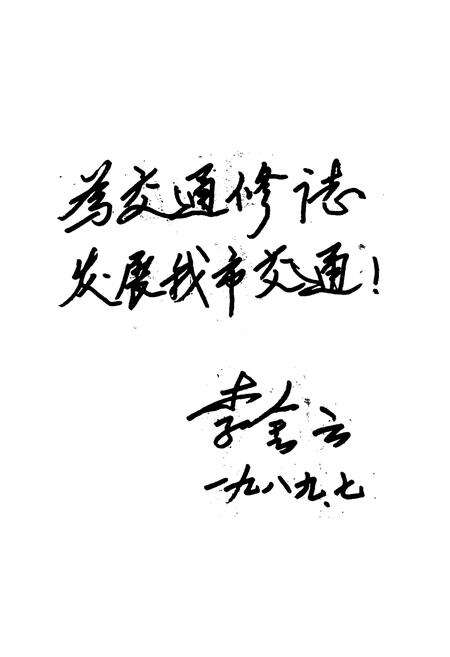 為交通修誌
发展我市交通！
李金云
一九八九.七